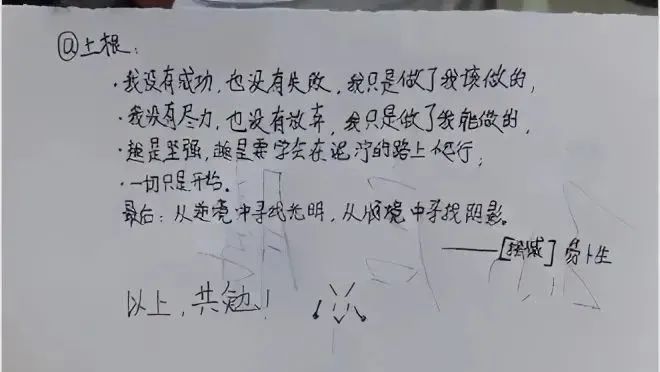 @土根:
·我没有成功,也没有失败,我只是做了我该做的,
·我没有尽力,也没有放弃,我只是做了我能做的,
·越是坚强,越是要学会在泥泞的路上爬行;
·一切只是开始。
最后:从逆境中寻找光明,从顺境中寻找阴影。
——[] 劳卜生
以上,共勉!